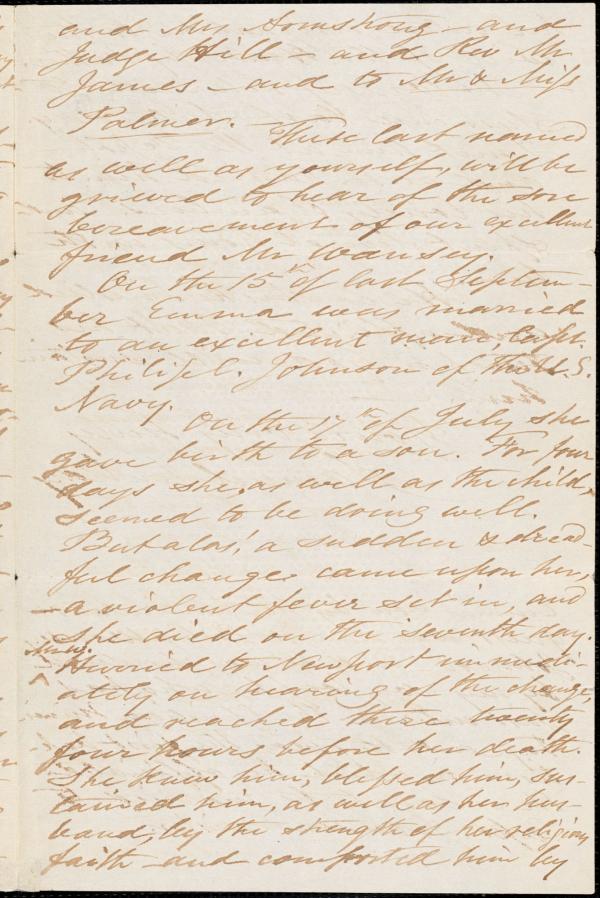 and Mrs Armstrong - and
Judge Hill - and Rev Mr
James - and to Mr & Miss
Palmer. - These last named
as well as yourself, will be
grieved to hear of the sore
bereavement of our excellent
friend Mr Wansey.
On the 15th of last Septem-
ber Emma was married
to an excellent man Capt.
Philip C. Johnson of the U.S.
Navy.
On the 17th of July she
gave birth to a son. For four
days she, as well as the child,
seemed to be doing well.
But alas! a sudden & dread-
ful change came upon her,
- a violent fever set in, and
she died on the seventh day.
Hurried to Newport immedi-
ately on hearing of the change,
and reached there twenty
four hours before her death.
She knew him, blessed him, sus-
tained him, as well as her hus-
band, by the strength of her religious
faith - and comforted him by